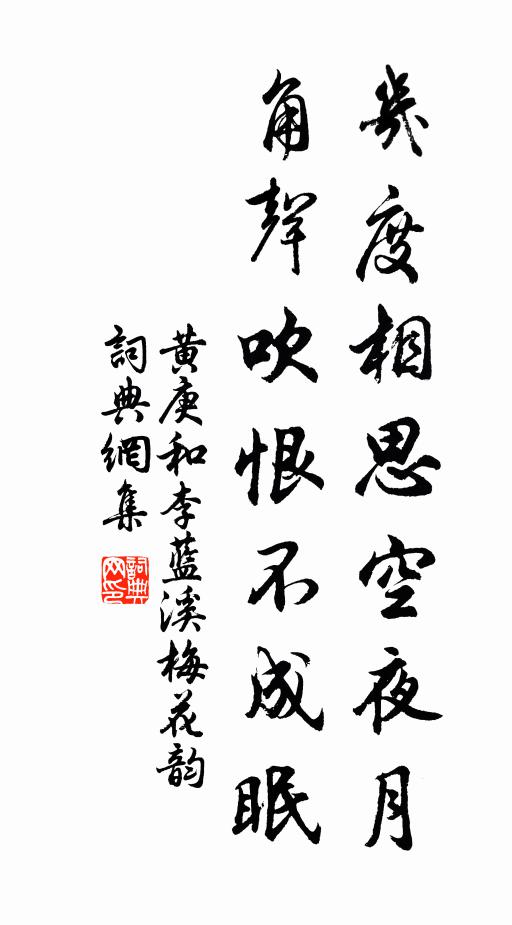 幾度相思空夜月
角聲吹恨不成眠
黄庚和李藍溪梅花韵
詞典網集
詞典網印